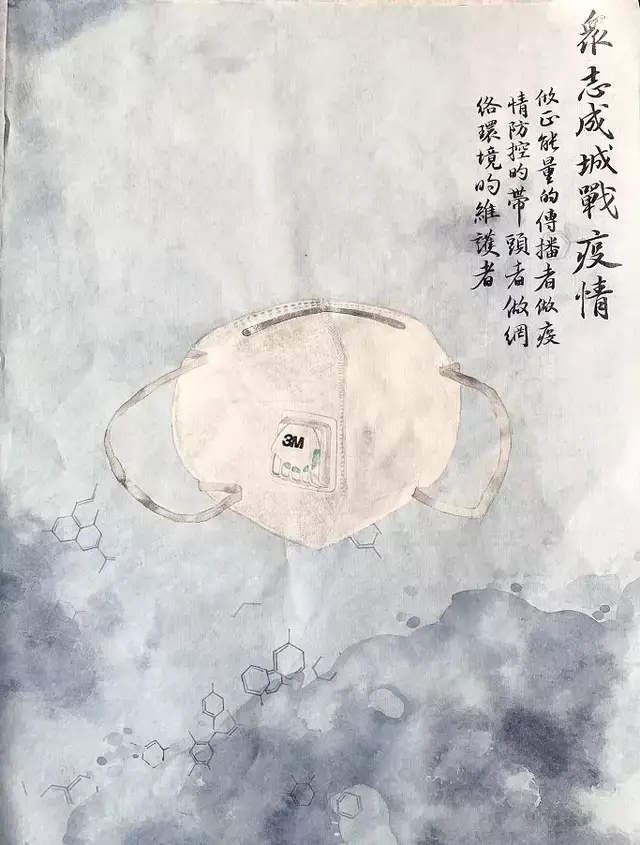 衆志成城戰疫情
做正能量的傳播者做疫
情防控的帶頭者做網
络環境的維護者
3M